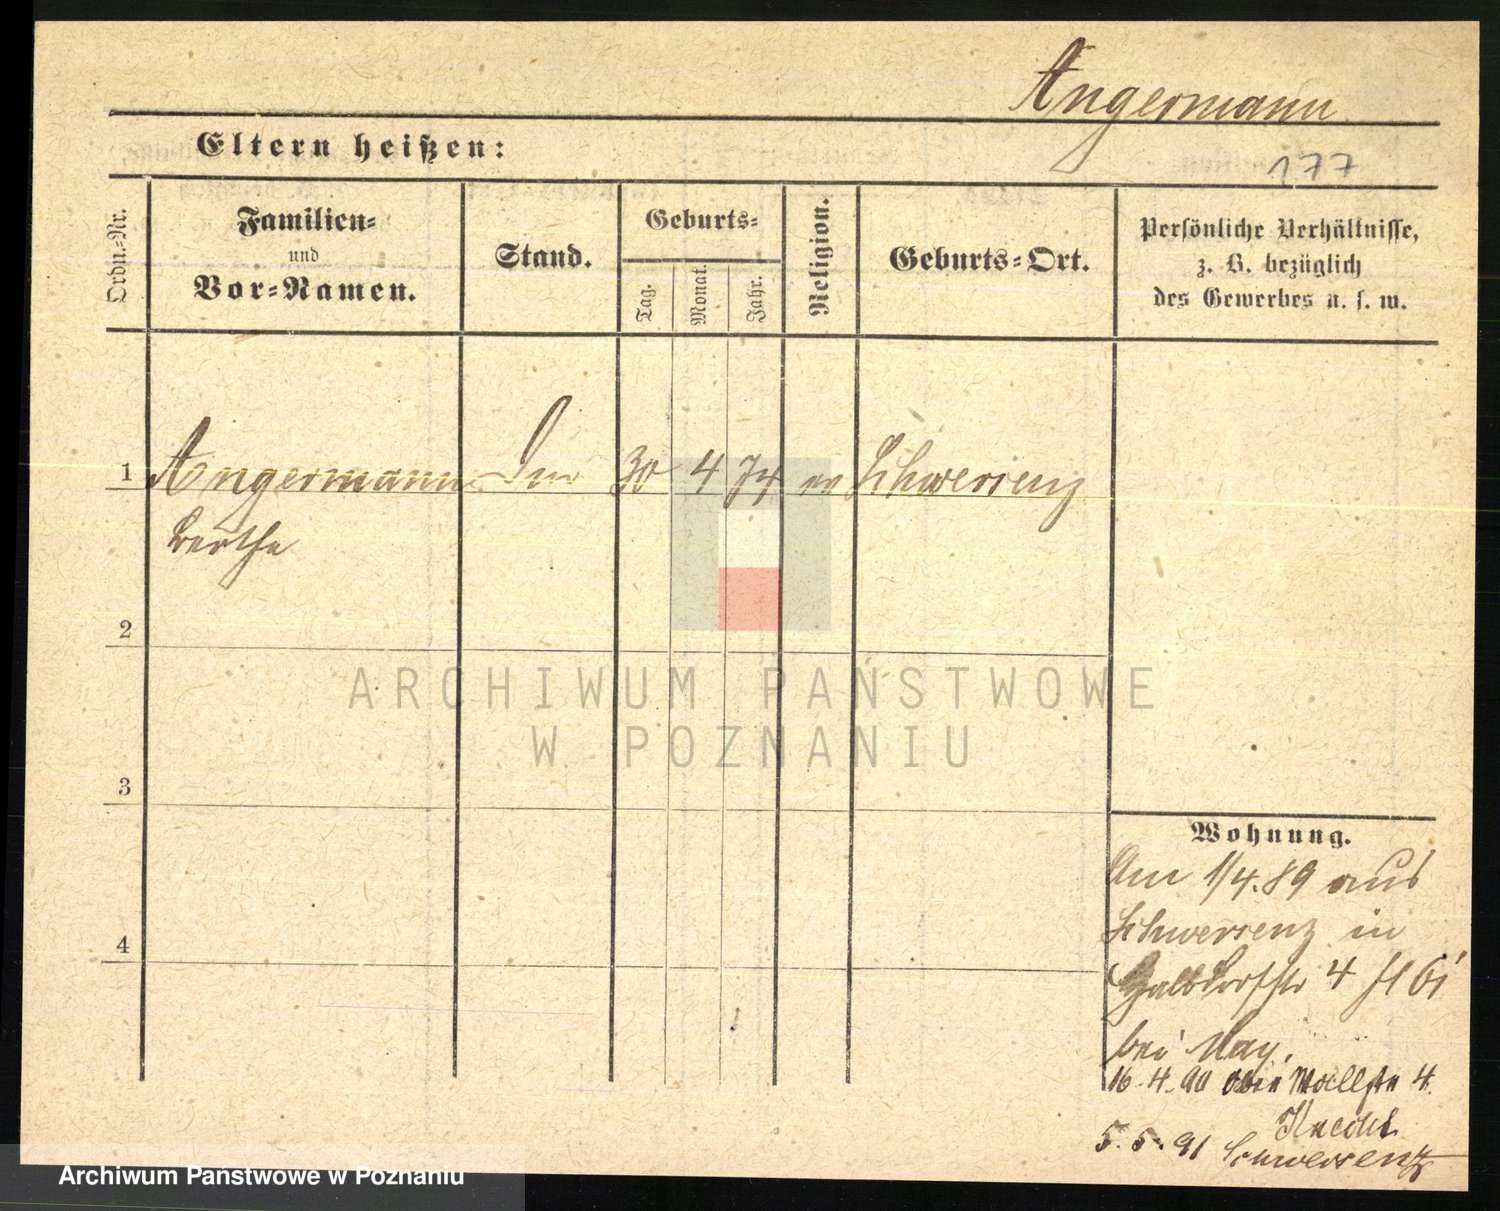 Angermann
Eltern heißen:
177
Ordn.-Nr.
Familien-
und
Vor-Namen.
Stand.
Geburts-
Tag.
Monat.
Jahr.
Religion.
Geburts-Ort.
Persönliche Verhältnisse,
z. B. bezüglich
des Gewerbes u. s. w.
1 Angermann 30 4 74 ev Schwersenz
Bertha
2
3
4
ARCHIWUM PAŃSTWOWE
W POZNANIU
Wohnung.
Am 1/4.89 aus
Schwersenz in
Halbdorfstr 4
bei May.
16.4.90 Wallstr 4.
Knecht
5.5.91 Schwersenz
Archiwum Państwowe w Poznaniu